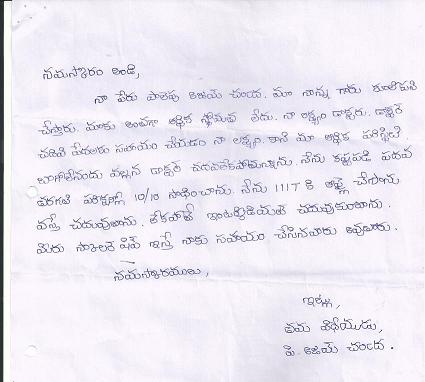 నమస్కారం అండి,
నా పేరు పాలెపు విజయ్ చంద్ర. మా నాన్న గారు కూలిపని
చేస్తారు. మాకు అంతగా ఆర్థిక స్తోమత లేదు. నా లక్ష్యం డాక్టరు. డాక్టర్
చదివి పేదలకు సహాయం చేయడం నా లక్ష్యం. కాని మా ఆర్థిక పరిస్థితి
బాగాలేనందు వల్లన డాక్టర్ చదవలేకపోతున్నాను. నేను కష్టపడి పదవ
తరగతి పరీక్షల్లో 10/10 సాధించాను. నేను IIIT కి అప్లై చేశాను
వస్తే చదువుతాను. లేకపోతే ఇంటర్మీడియట్ చదువుకుంటాను.
మీరు స్కాలర్ షిప్ ఇస్తే నాకు సహాయం చేసినవారు అవుతారు.
నమస్కారములు,
ఇట్లు,
తమ విధేయుడు,
పి. విజయ్ చంద్ర.